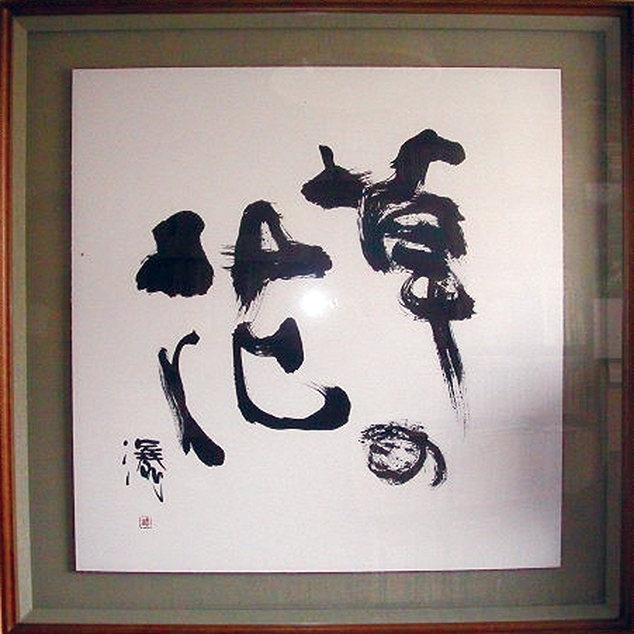 草の
花